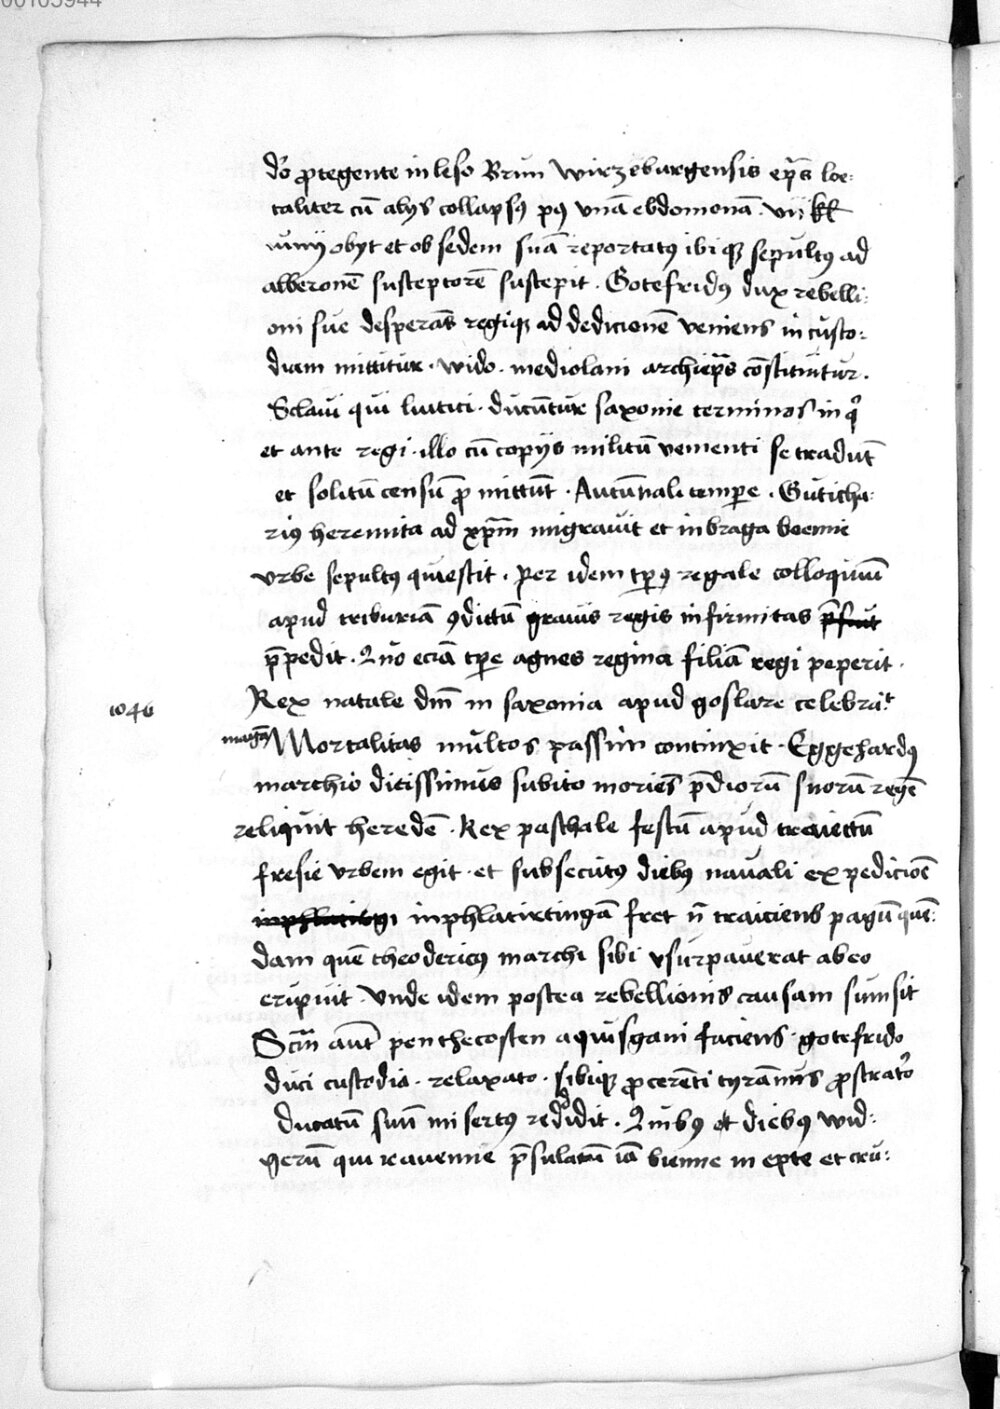 00103944
dō ꝓtegente inleso Brun wirzeburgensis ep̄s loe:
taliter cū alys collapsꝰ pꝰ vnā ebdomonā · vij kl̄
iunij obyt et ob sedem suā reportatꝰ ibi qꝫ sepultꝰ ad
alberonē susceptorē suscepit · Gotefridꝰ dux rebelli:
oni sue desperās regiqꝫ ad dedicionē veniens in custo:
diam mittitur · wido · mediolani archiep̄s cōstituitur ·
Sclaui qui liutici · dicūtur saxonie terminos in qͦ
et ante regi · illo cū copijs militū venienti se tradūt
et solitū censū ꝓ mittūt · Autūnali tempe · Gūticha:
riꝰ heremita ad xp̄m migrauit et in braga boemie
vrbe sepultꝰ quiescit · per idem tp̄ꝰ regale colloquiū
apud triburiā ꝯdictū grauis regis infirmitas p̄fuit
p̄pedit · Quo eciā tp̄e agnes regina filiā regi peperit ·
1046
Rex natale dm̄ in saxonia apud goslare celebraͭ
magā Mortalitas multos passim continxit · Eggehardꝰ
marchio ditissimus subito moriēs p̄diorū suorū regē
reliquit heredē · Rex paschale festū apud traiectū
fresie vrbem egit · et subsecutꝰ diebꝰ nauali expedicioē
inphlatirtingā fret n̄ traiciens pagū quē:
dam quē theodericꝰ marchi sibi vsurpauerat abeo
eripuit · Vnde idem postea rebellionis causam sumsit
Scm̄ aūt penthecosten aquisgani faciens · gotefrido
duci custodia · relaxato · sibiqꝫ ꝓcerēti tyrānnis ꝓstratͦ
ducatū suū misertꝰ reddidit · Quibꝰ et diebꝰ wid:
gerū qui rauenne p̄sulatū iā bienne in epte et cru: